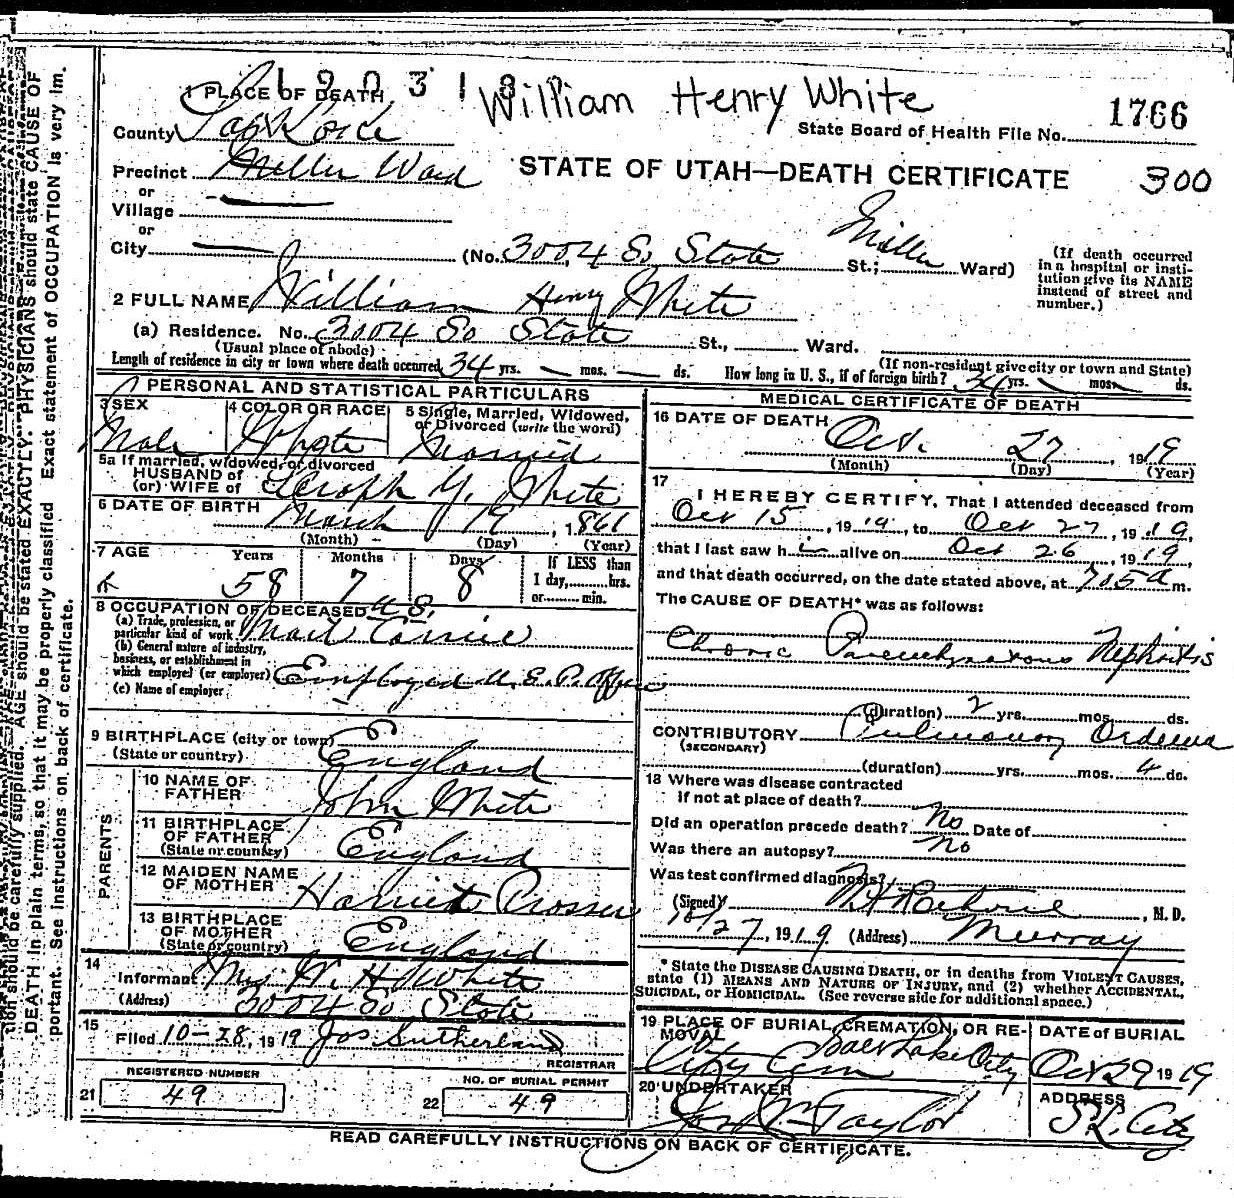 190318
William Henry White
1 PLACE OF DEATH
1766
County Salt Lake
State Board of Health File No.
Precinct Miller Ward
STATE OF UTAH—DEATH CERTIFICATE
300
or
Village
or
City (No. 3004 S. State St.; Miller Ward)
(If death occurred in a hospital or insti-
tution give its NAME
instead of street and
number.)
2 FULL NAME William Henry White
(a) Residence. No. 3004 So State St., Ward.
(Usual place of abode)
(If non-resident give city or town and State)
Length of residence in city or town where death occurred 34 yrs. — mos. — ds. How long in U. S., if of foreign birth? 34 yrs. mos. ds.
PERSONAL AND STATISTICAL PARTICULARS
3 SEX
Male
4 COLOR OR RACE
White
5 Single, Married, Widowed,
or Divorced (write the word)
Married
5a If married, widowed, or divorced
HUSBAND of
(or) WIFE of Y. White
6 DATE OF BIRTH March 19, 1861
(Month) (Day) (Year)
7 AGE Years Months Days If LESS than
58 7 8 1 day, hrs.
or min.
8 OCCUPATION OF DECEASED U.S.
(a) Trade, profession, or
particular kind of work Mail Carrier
(b) General nature of industry,
business, or establishment in
which employed (or employer) Employed U. S. P. Office
(c) Name of employer
9 BIRTHPLACE (city or town)
(State or country) England
PARENTS
10 NAME OF
FATHER John White
11 BIRTHPLACE
OF FATHER
(State or country) England
12 MAIDEN NAME
OF MOTHER Harriet Prosser
13 BIRTHPLACE
OF MOTHER
(State or country) England
14
Informant Mrs. W. H. White
(Address) 3004 So. State
15
Filed 10-28, 1919 Jos. Sutherland
REGISTRAR
REGISTERED NUMBER
21 49
NO. OF BURIAL PERMIT
22 49
MEDICAL CERTIFICATE OF DEATH
16 DATE OF DEATH
Oct. 27, 1919
(Month) (Day) (Year)
17
I HEREBY CERTIFY, That I attended deceased from
Oct 15, 1919, to Oct 27, 1919,
that I last saw him alive on Oct 26, 1919,
and that death occurred, on the date stated above, at 7.05 a m.
The CAUSE OF DEATH* was as follows:
Chronic Parenchymatous Nephritis
(duration) 2 yrs. mos. ds.
CONTRIBUTORY Pulmonary Oedema
(SECONDARY)
(duration) yrs. mos. 4 ds.
18 Where was disease contracted
if not at place of death?
Did an operation precede death? No Date of
Was there an autopsy? No
Was test confirmed diagnosis?
(Signed) , M. D.
10/27, 1919 (Address) Murray
* State the DISEASE CAUSING DEATH, or in deaths from VIOLENT CAUSES,
state (1) MEANS AND NATURE OF INJURY, and (2) whether ACCIDENTAL,
SUICIDAL, OR HOMICIDAL. (See reverse side for additional space.)
19 PLACE OF BURIAL, CREMATION, OR RE-
MOVAL Salt Lake City
City Cem
DATE of BURIAL
Oct 29 1919
20 UNDERTAKER
Taylor
ADDRESS
S L. City
READ CAREFULLY INSTRUCTIONS ON BACK OF CERTIFICATE.
tion should be carefully supplied. AGE should be stated EXACTLY. PHYSICIANS should state CAUSE OF
DEATH in plain terms, so that it may be properly classified. Exact statement of OCCUPATION is very im-
portant. See instructions on back of certificate.